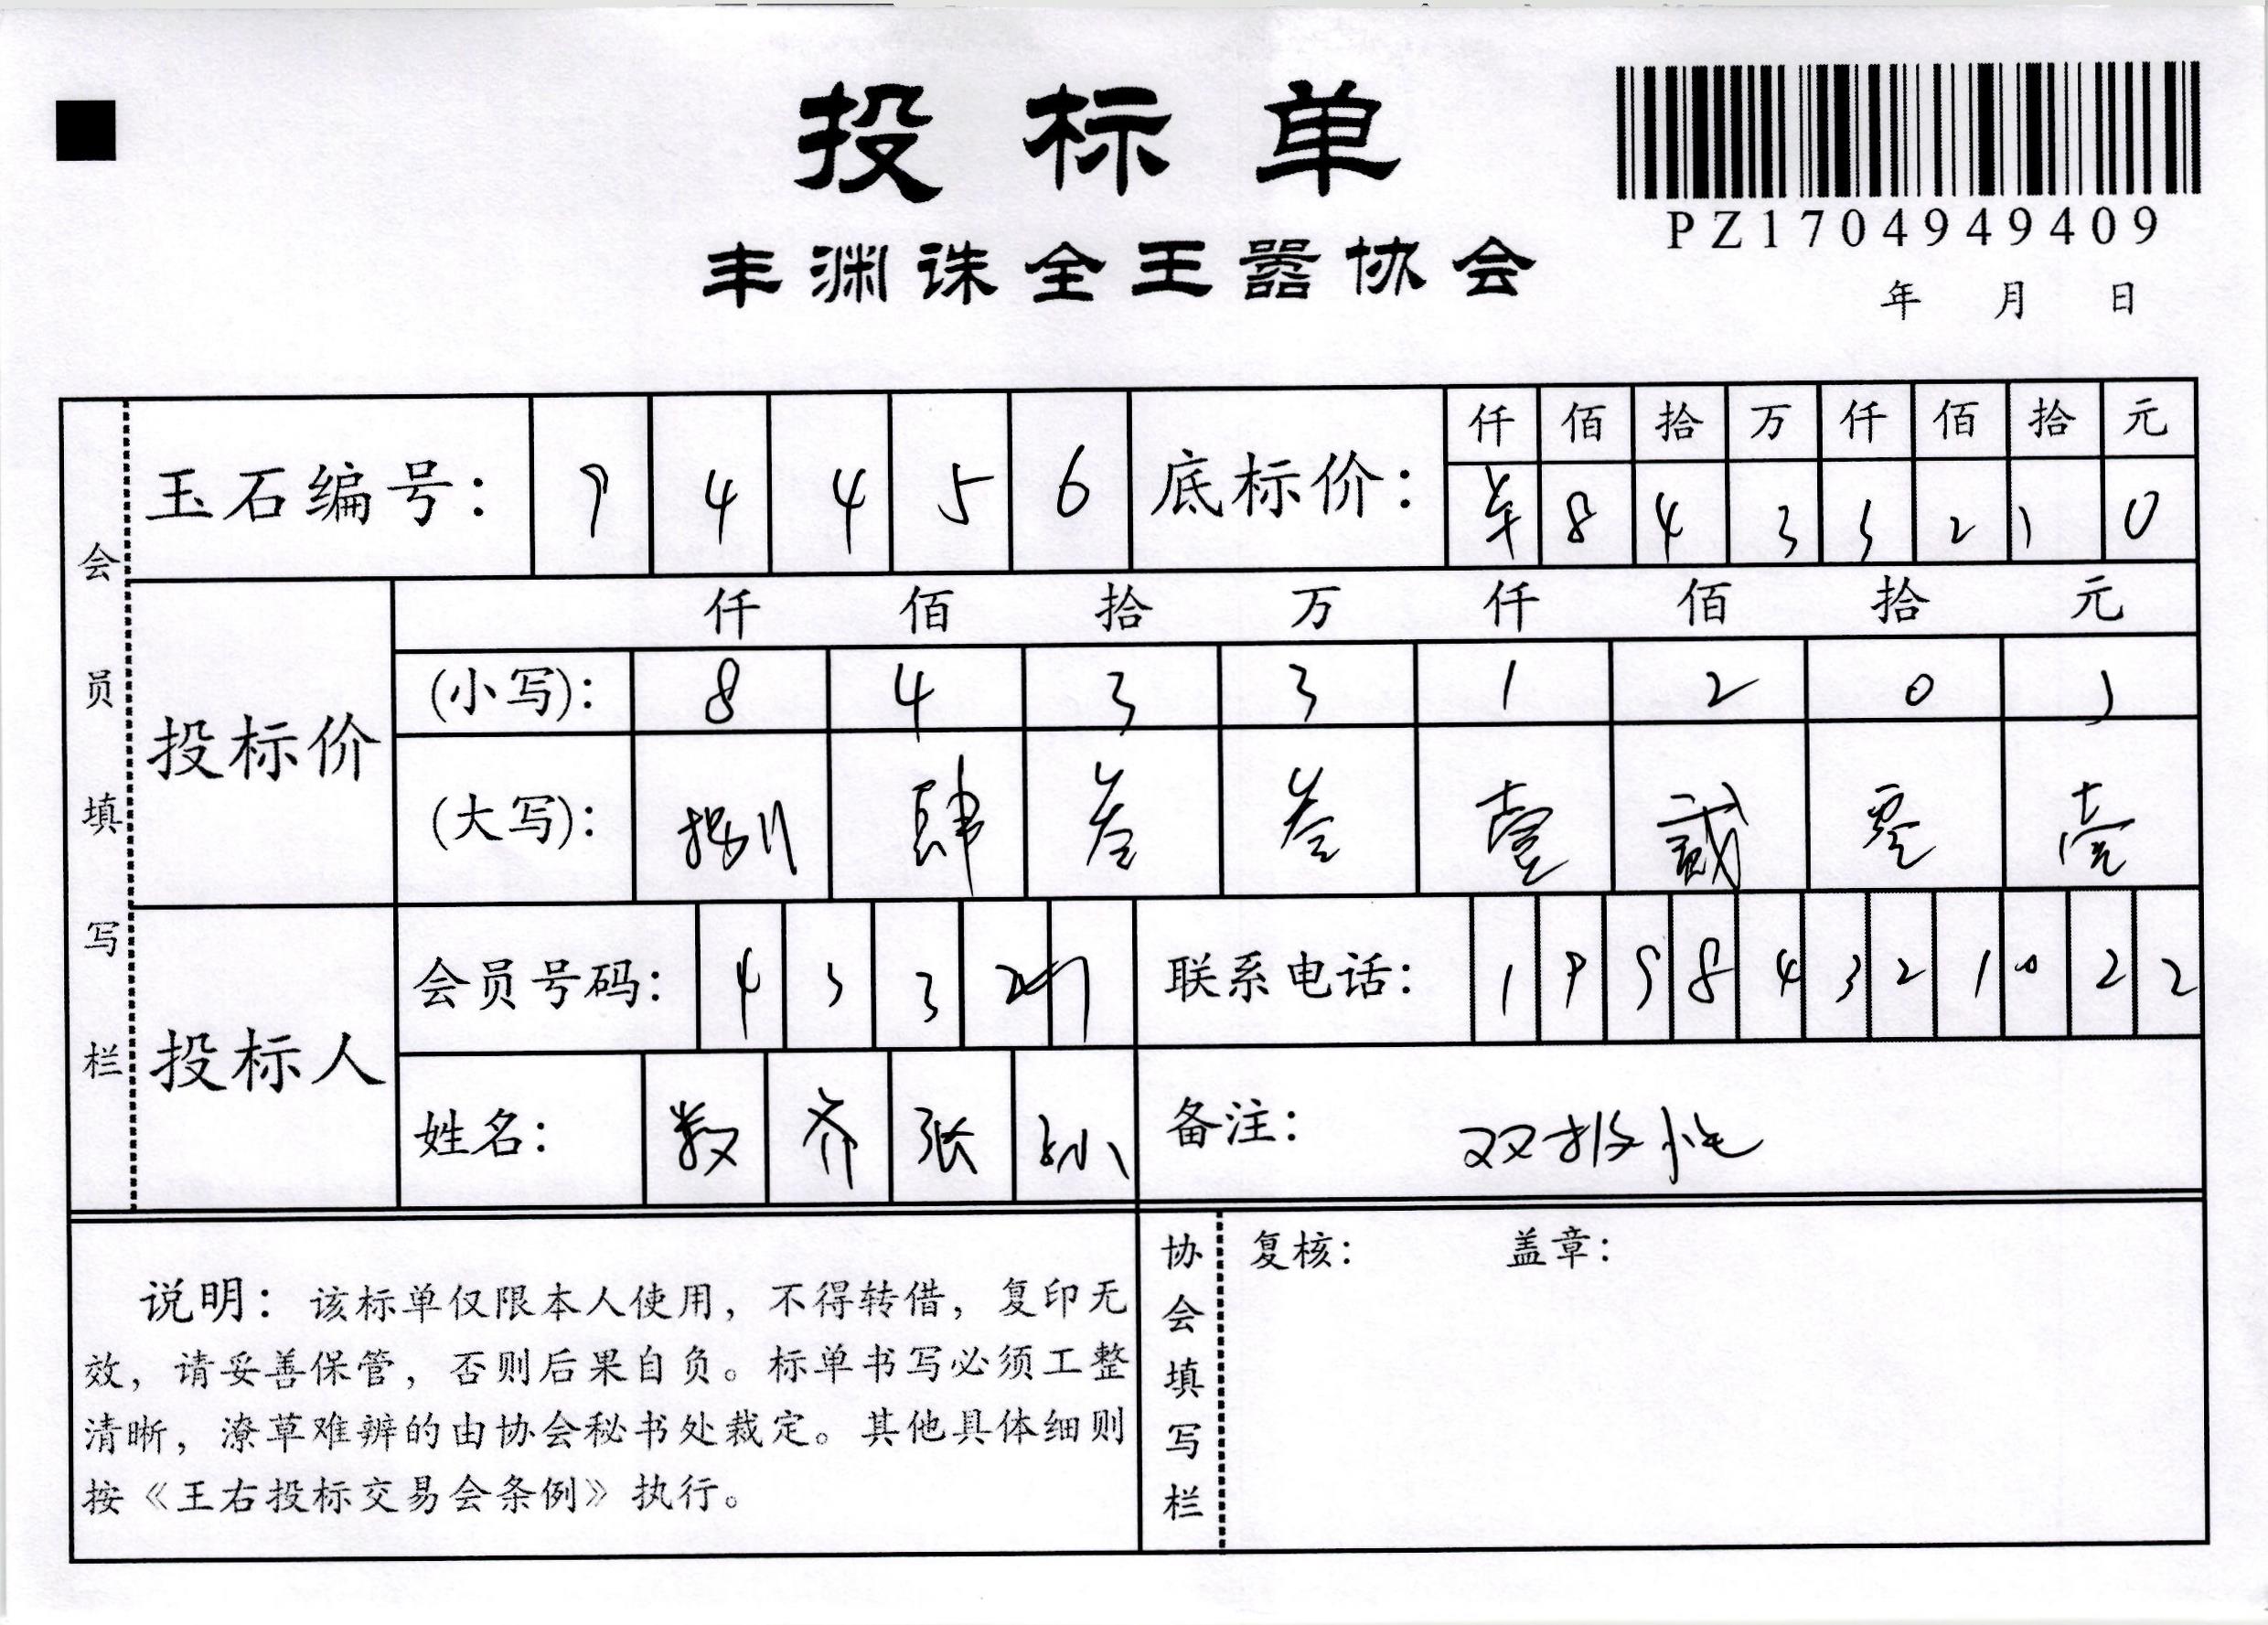 投标单
PZ1704949409
丰渊诛全王嚣协会
年 月 日
会员填写栏
玉石编号： 9 4 4 5 6
底标价： 仟 佰 拾 万 仟 佰 拾 元
8 4 3 3 2 1 0
投标价 仟 佰 拾 万 仟 佰 拾 元
(小写)： 8 4 3 3 1 2 0 1
(大写)： 捌 肆 叁 叁 壹 贰 零 壹
投标人
会员号码： 4 3 3 2
联系电话： 1 9 9 8 4 3 2 1 0 2 2
姓名： 数 齐 张 孙
备注：
说明：该标单仅限本人使用，不得转借，复印无
效，请妥善保管，否则后果自负。标单书写必须工整
清晰，潦草难辨的由协会秘书处裁定。其他具体细则
按《王右投标交易会条例》执行。
协会填写栏
复核： 盖章：